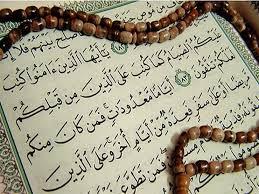 مِن مُّوصٍ
صْلَحَ بَيْنَهُمْ فَلَآ
يَٰٓأَيُّهَا ٱلَّذِينَ ءَامَنُوا۟ كُتِبَ
عَلَيْكُمُ ٱلصِّيَامُ كَمَا كُتِبَ عَلَى ٱلَّذِينَ مِن قَبْلِكُمْ
تَتَّقُونَ ١٨٣ أَيَّامًا مَّعْدُودَٰتٍ فَمَن كَانَ مِنكُم
مَّرِيضًا أَوْ عَلَىٰ سَفَرٍ فَعِدَّةٌ مِّنْ أَيَّامٍ أُخَرَ وَعَلَى ٱلَّذِينَ
فَمَن تَطَوَّعَ